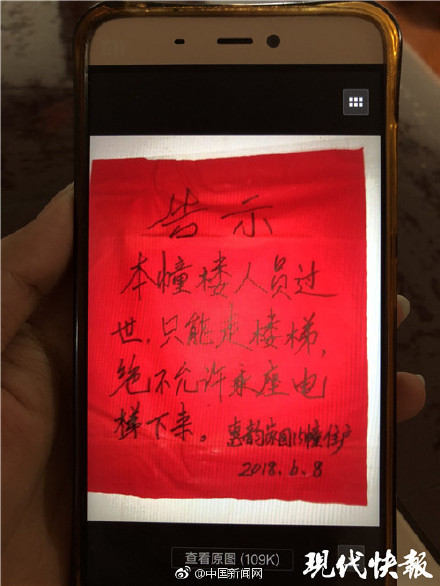 mi
告示
本幢楼人员过
世,只能走楼梯,
绝不允许乘座电
梯下来。惠韵家园15幢住户
2018.6.8
查看原图(109K)
@中国新闻网
现代快報